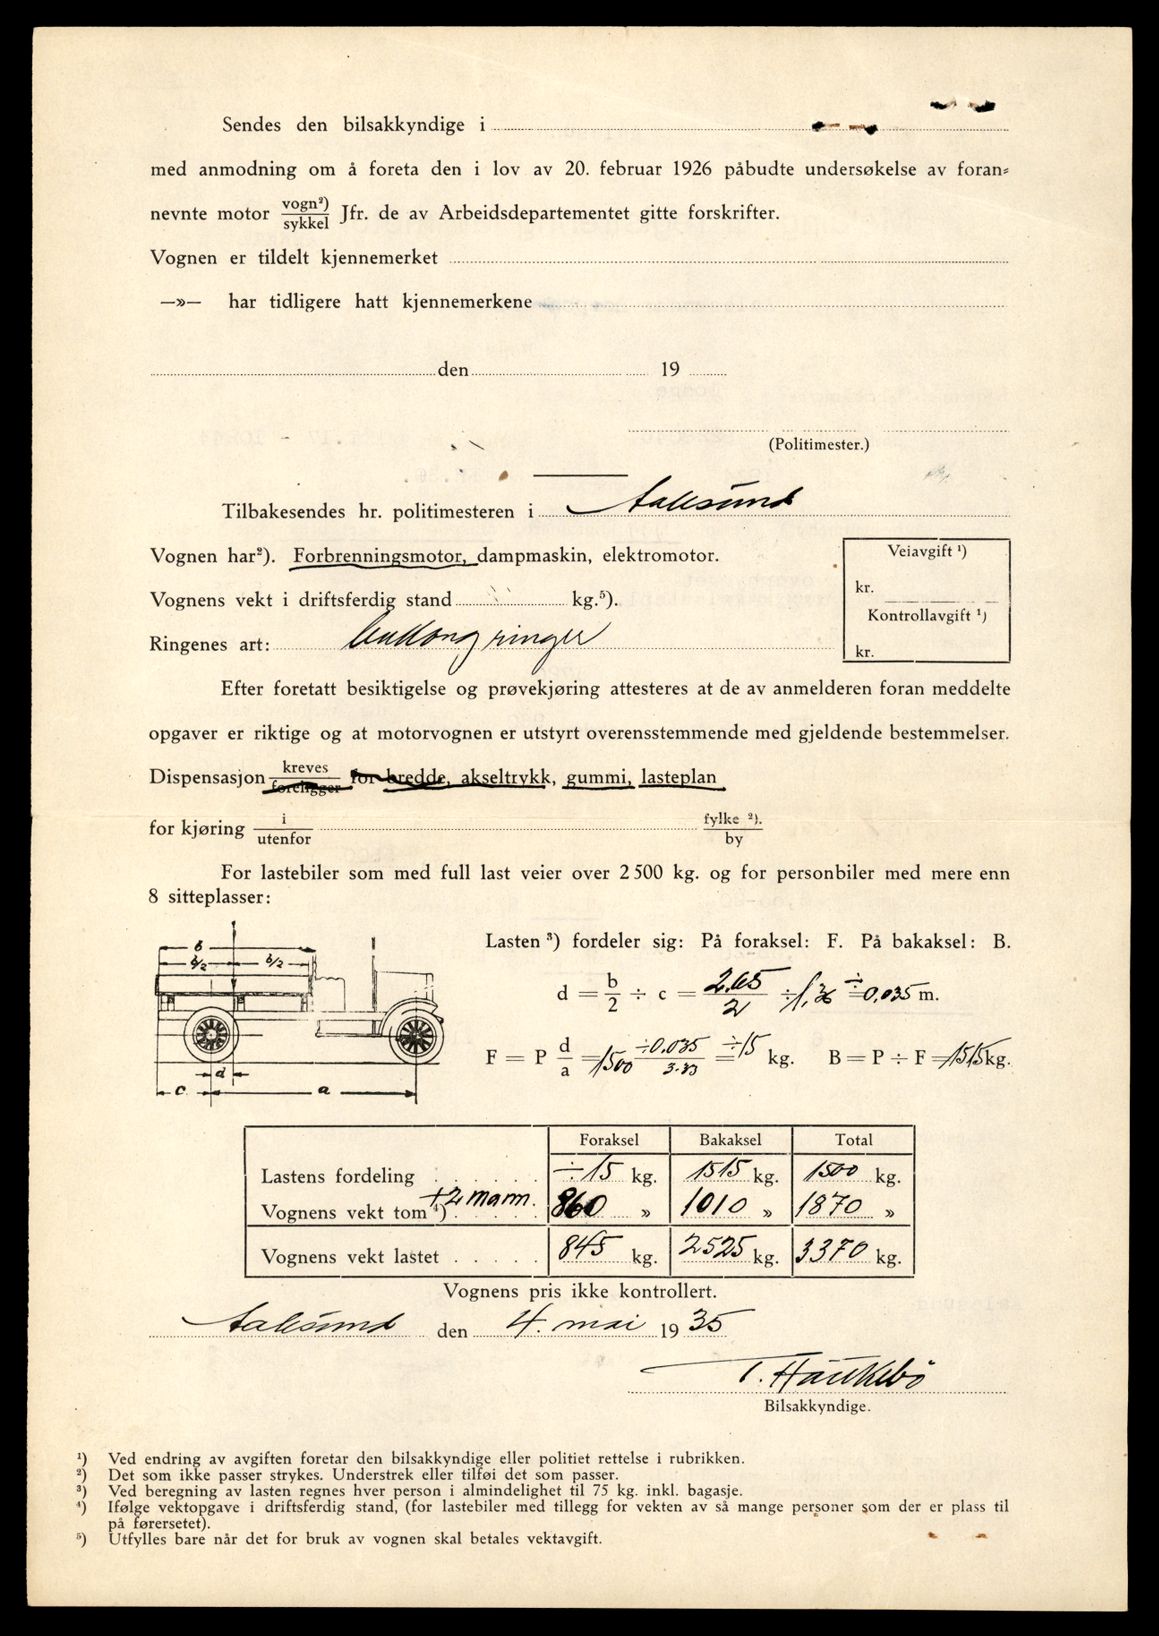 Sendes den bilsakkyndige i
med anmodning om å foreta den i lov av 20. februar 1926 påbudte undersøkelse av foran-
nevnte motor vogn²)/sykkel Jfr. de av Arbeidsdepartementet gitte forskrifter.
Vognen er tildelt kjennemerket
—»— har tidligere hatt kjennemerkene
den 19
(Politimester.)
Tilbakesendes hr. politimesteren i Aalesund
Vognen har²). Forbrenningsmotor, dampmaskin, elektromotor.
Veiavgift ¹)
kr.
Vognens vekt i driftsferdig stand kg.⁵).
Kontrollavgift ¹)
kr.
Ringenes art: ballong ringer
Efter foretatt besiktigelse og prøvekjøring attesteres at de av anmelderen foran meddelte
opgaver er riktige og at motorvognen er utstyrt overensstemmende med gjeldende bestemmelser.
Dispensasjon kreves/foreligger for bredde, akseltrykk, gummi, lasteplan
for kjøring i/utenfor fylke ²)./by
For lastebiler som med full last veier over 2 500 kg. og for personbiler med mere enn
8 sitteplasser:
b
b/2 b/2
d
c a
Lasten ³) fordeler sig: På foraksel: F. På bakaksel: B.
d = b/2 ÷ c = 2.65/2 ÷ 1,36 = ÷0,035 m.
F = P d/a = 1500 ÷0,035/3.33 = ÷15 kg. B = P ÷ F = 1515 kg.
Foraksel Bakaksel Total
Lastens fordeling ÷15 kg. 1515 kg. 1500 kg.
Vognens vekt tom ⁴) +2 mann. 860 » 1010 » 1870 »
Vognens vekt lastet 845 kg. 2525 kg. 3370 kg.
Vognens pris ikke kontrollert.
Aalesund den 4. mai 1935
T. Haukebö
Bilsakkyndige.
¹) Ved endring av avgiften foretar den bilsakkyndige eller politiet rettelse i rubrikken.
²) Det som ikke passer strykes. Understrek eller tilføi det som passer.
³) Ved beregning av lasten regnes hver person i almindelighet til 75 kg. inkl. bagasje.
⁴) Ifølge vektopgave i driftsferdig stand, (for lastebiler med tillegg for vekten av så mange personer som der er plass til
på førersetet).
⁵) Utfylles bare når det for bruk av vognen skal betales vektavgift.